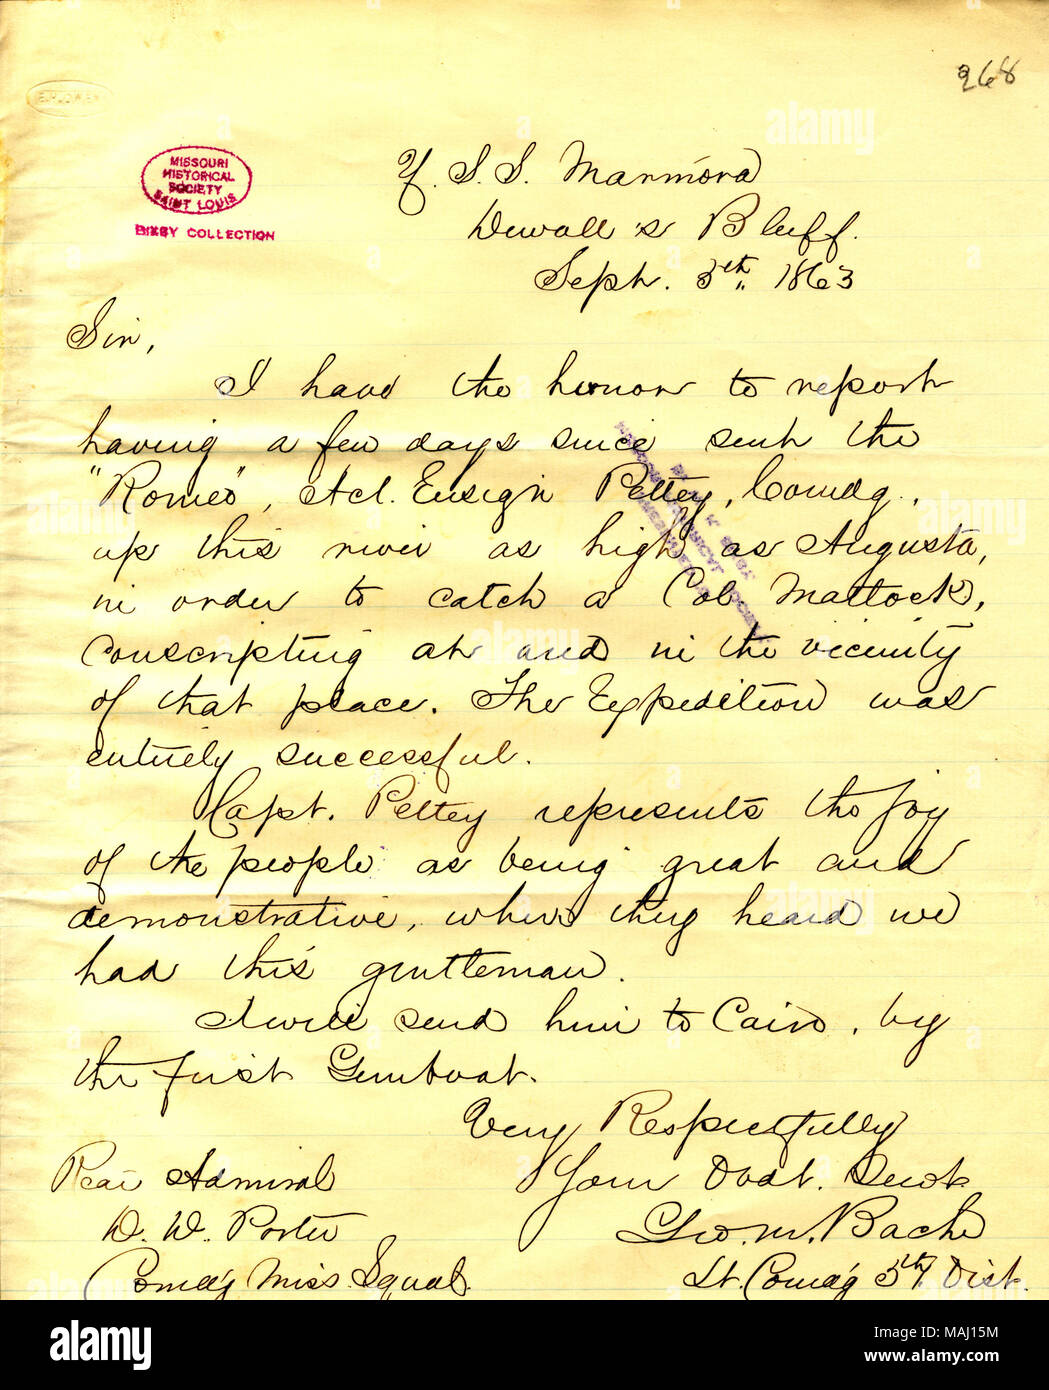 268
E.H. OWEN
MISSOURI
HISTORICAL
SOCIETY
SAINT LOUIS
BIXBY COLLECTION
U.S.S. Marmora
Duvall's Bluff.
Sept. 5th 1863
Sir,
I have the honor to report
having a few days since sent the
"Romeo", Act. Ensign Pettey, Comdg.,
up this river as high as Augusta,
in order to catch a Col. Mattock,
conscripting at and in the vicinity
of that place. The Expedition was
entirely successful.
Capt. Pettey represents the joy
of the people as being great and
demonstrative, when they heard we
had this gentleman.
I will send him to Cairo, by
the first Gunboat.
Very Respectfully
Your Obdt. Servt.
Geo. M. Bache
Lt. Comd'g 5th Dist.
Rear Admiral
D. W. Porter
Comd'g Miss. Squad.
alamy
Image ID: MAJ15M
www.alamy.com